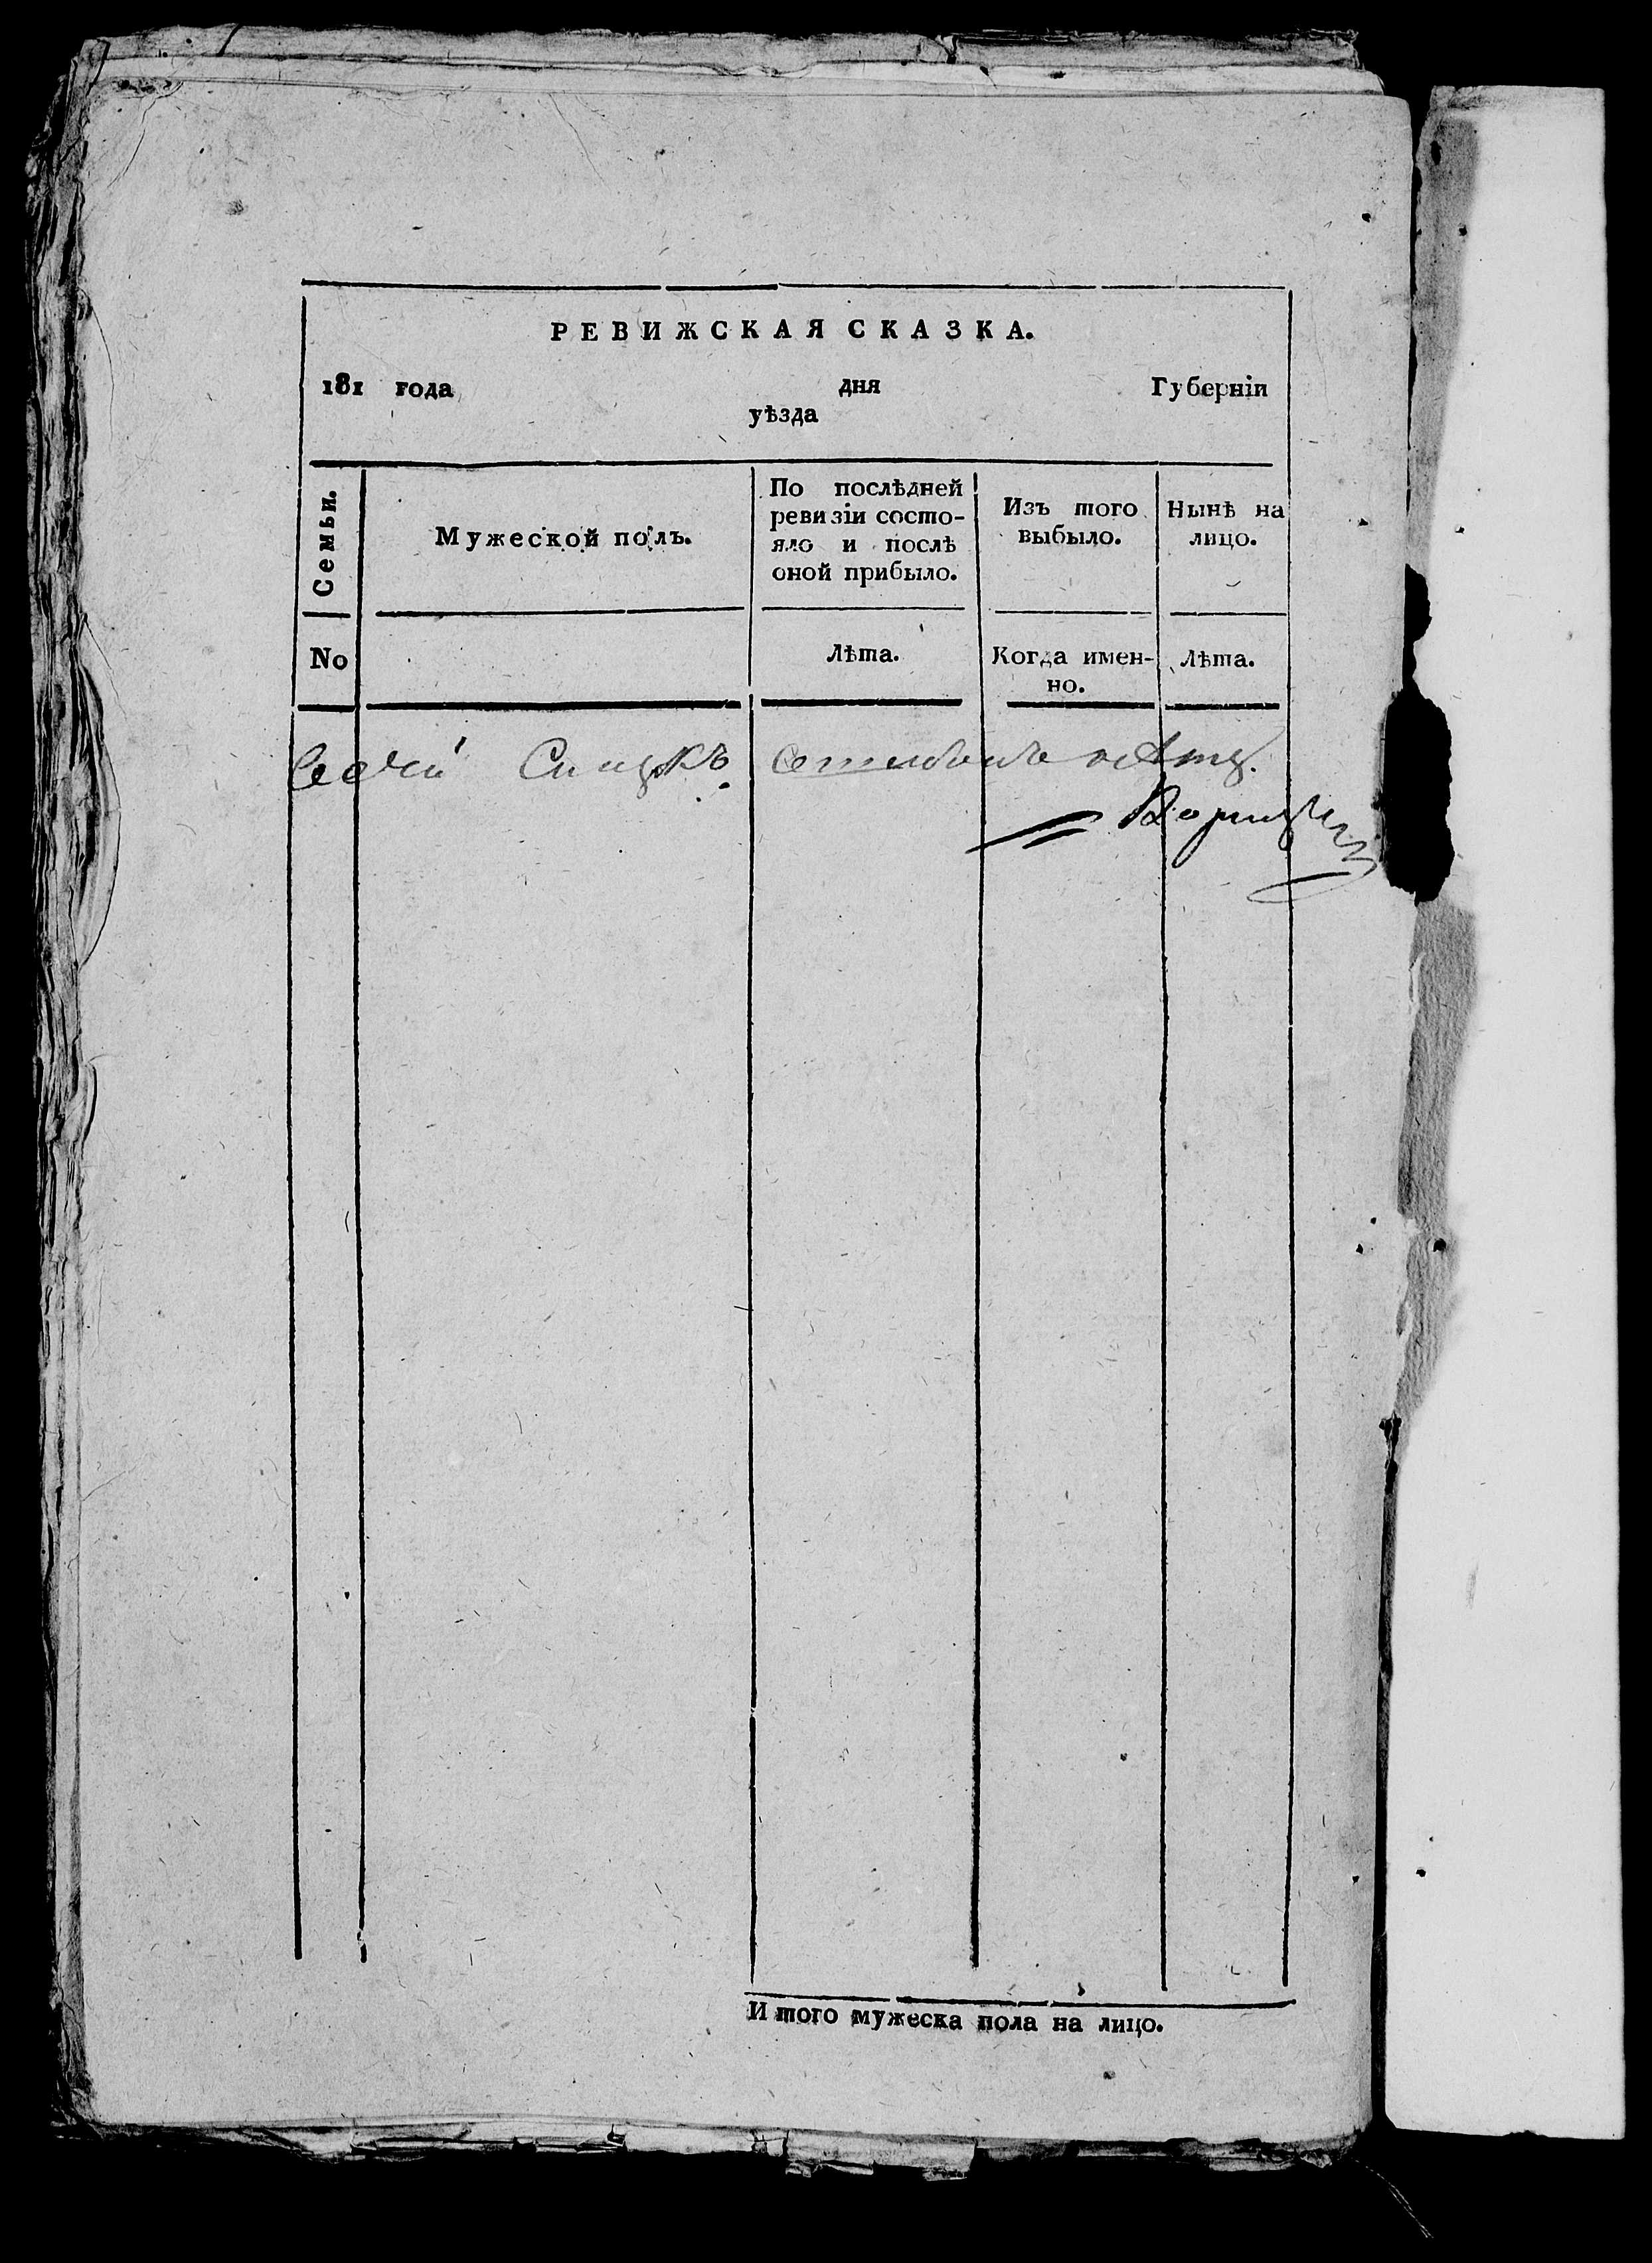 РЕВИЖСКАЯ СКАЗКА.
181 года дня Губерніи
уѣзда
Семьи.
Мужеской полъ.
По послѣдней
ревизіи состо-
яло и послѣ
оной прибыло.
Изъ того
выбыло.
Нынѣ на
лицо.
No
Лѣта.
Когда имен-
но.
Лѣта.
Итого мужеска пола на лицо.